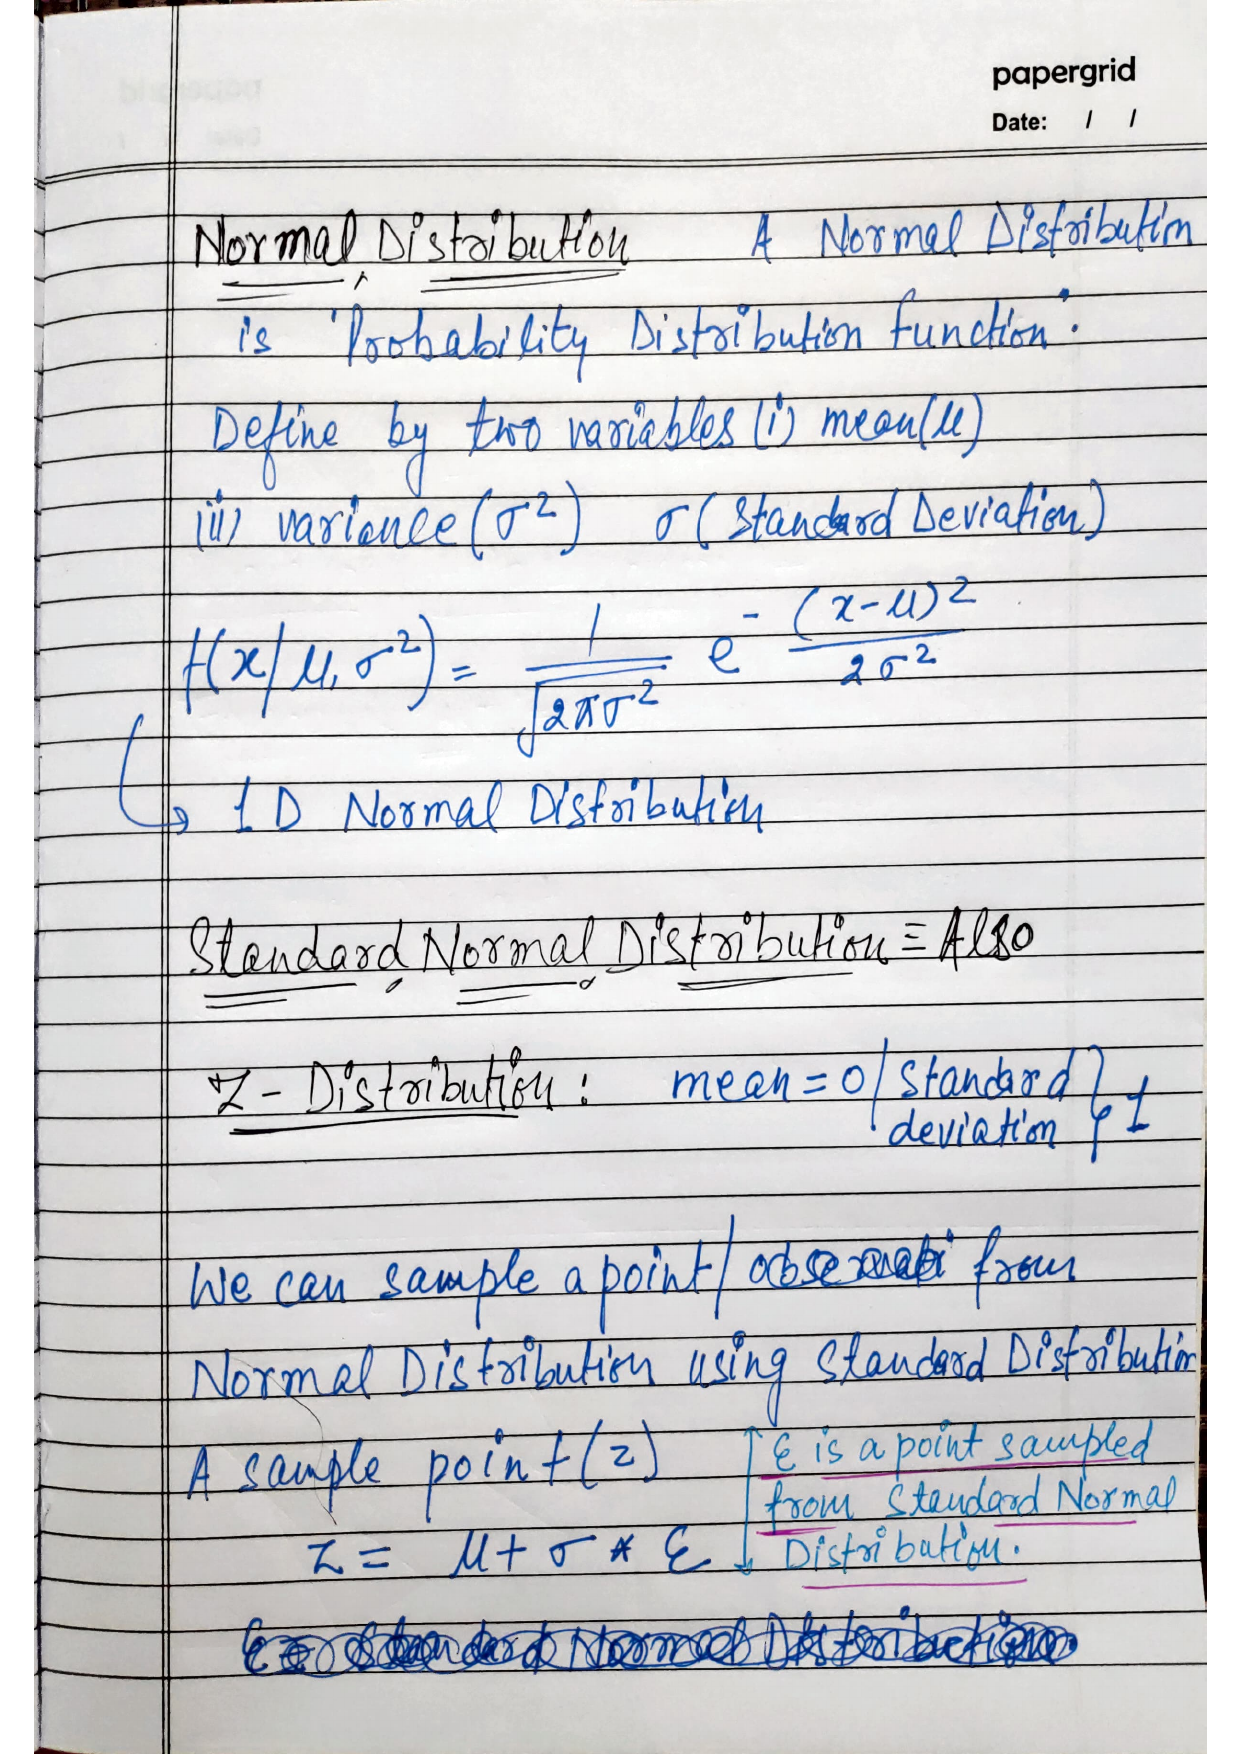 papergrid
Date: / /
Normal Distribution A Normal Distribution
is 'Probability Distribution function'.
Define by two variables (i) mean(μ)
(ii) variance(σ²) σ(Standard Deviation)
f(x/μ, σ²) = 1/√2πσ² e^-(x-μ)²/2σ²
1D Normal Distribution
Standard Normal Distribution ≡ Also
Z-Distribution: mean = 0/ standard deviation} 1
We can sample a point/ from
Normal Distribution using Standard Distribution
A sample point(z)
z = μ + σ * ε
ε is a point sampled
from Standard Normal
Distribution.